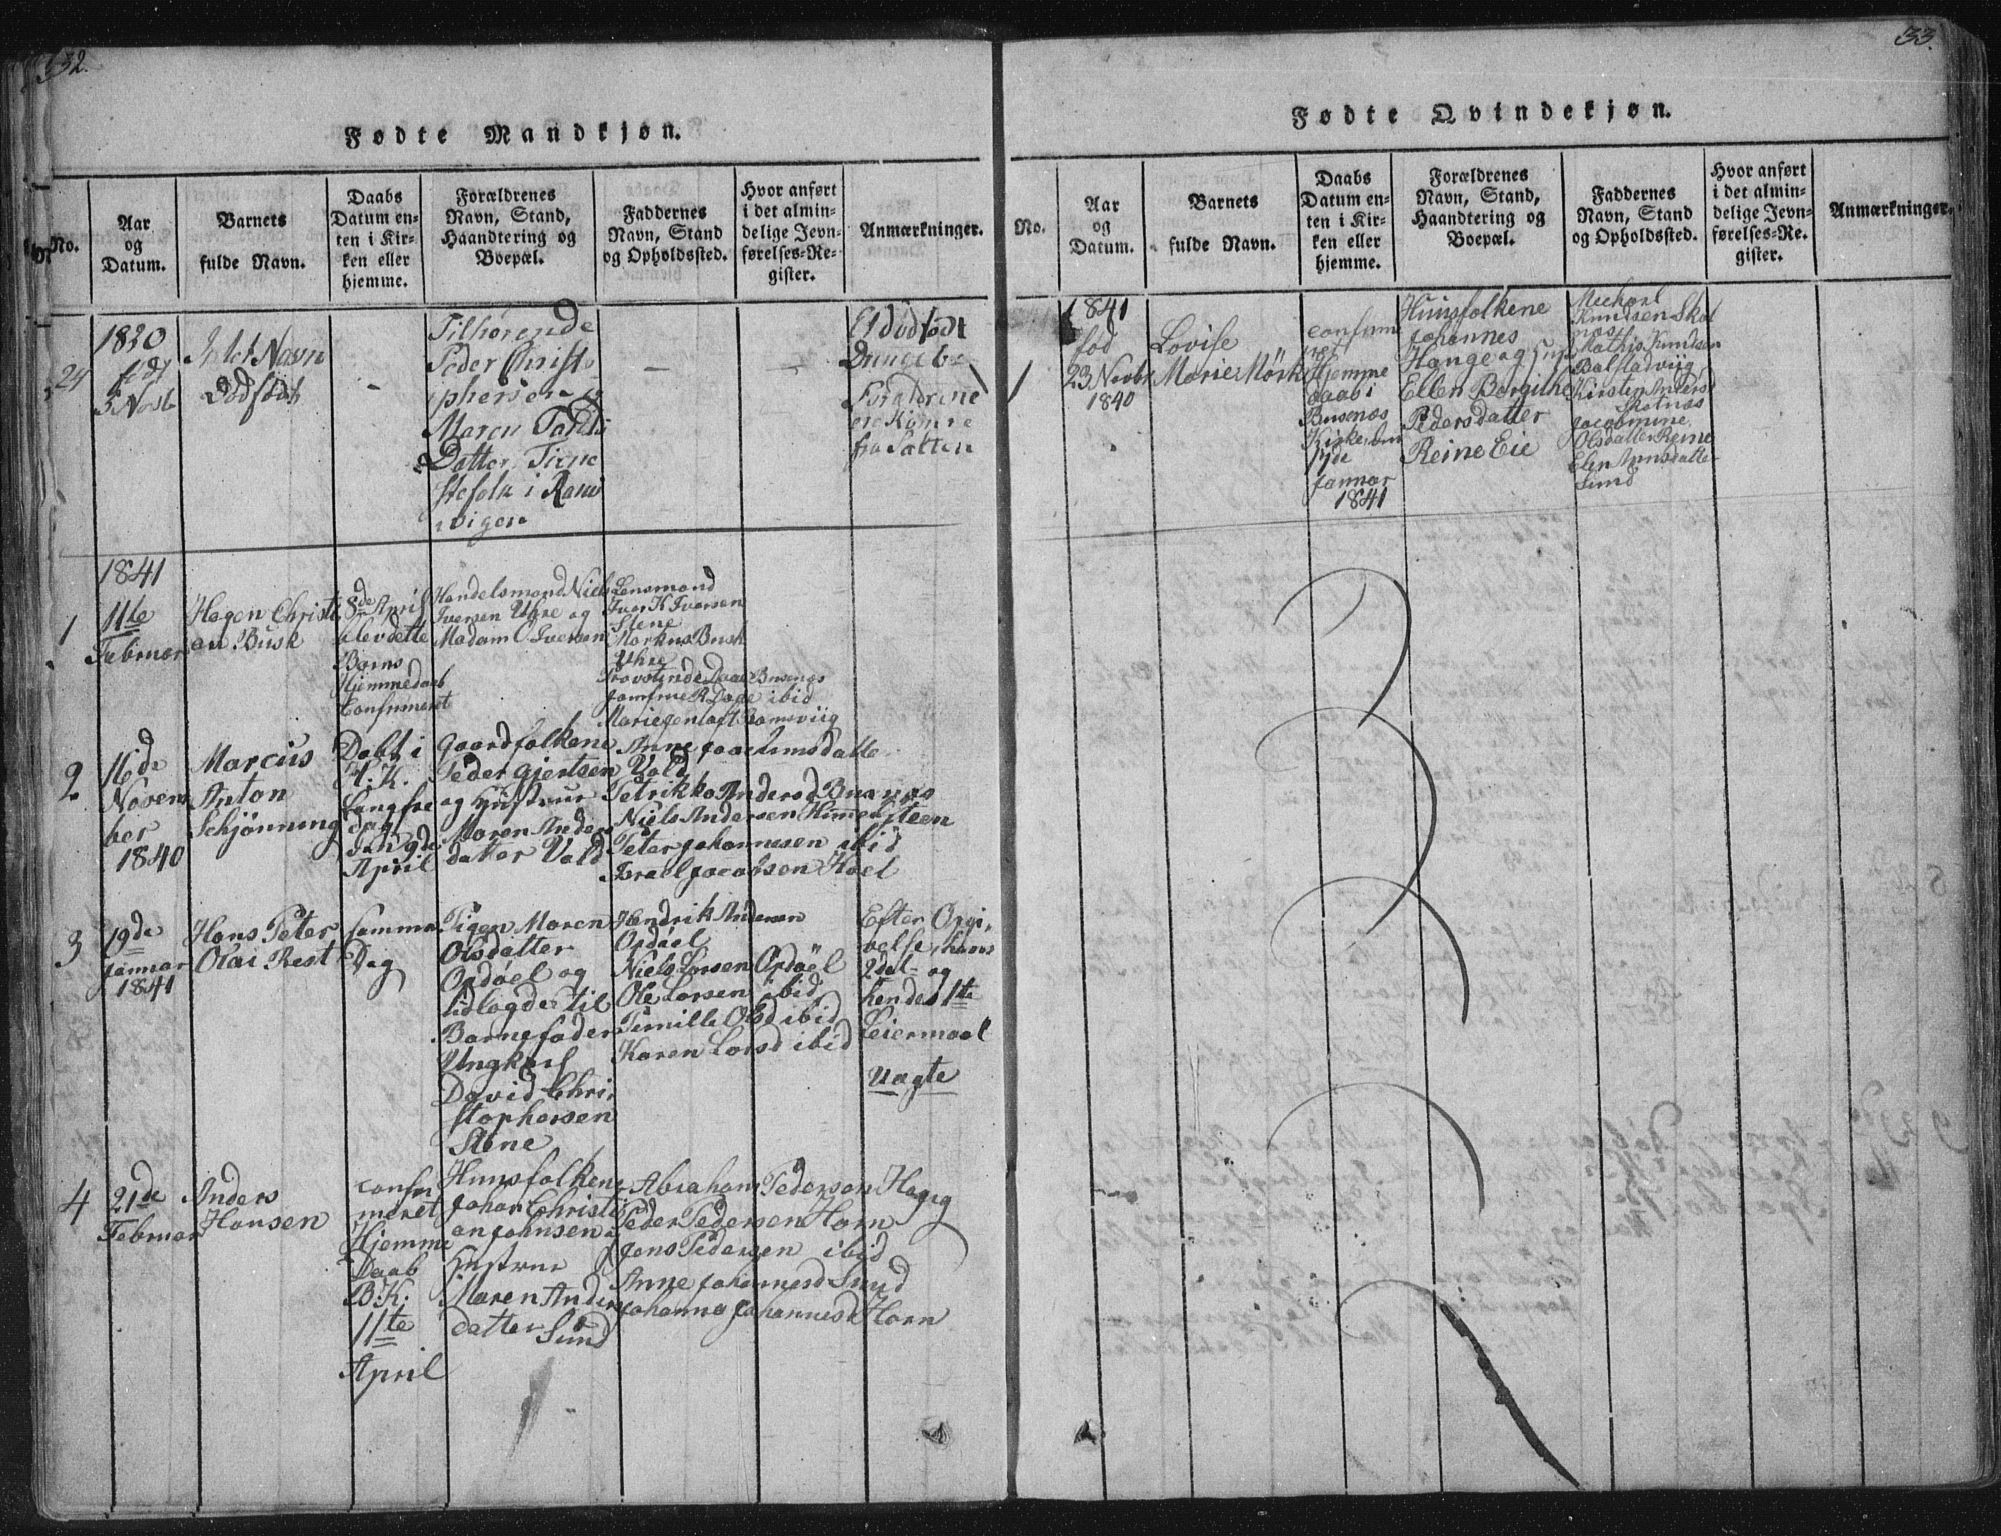 332.
Fødte Mandkjøn.
No.
Aar
og
Datum.
Barnets
fulde Navn.
Daabs
Datum en-
ten i Kir-
ken eller
hjemme.
Forældrenes
Navn, Stand,
Haandtering og
Boepæl.
Faddernes
Navn, Stand
og Opholdssted.
Hvor anført
i det almin-
delige Jevn-
førelses-Re-
gister.
Anmærkninger.
24
Intet Navn
Dødfødt
Tilhørende
Peder Christo
phersen og
Maren
Datter
1841
1
11te
Februar
Hagen Christi
an Busk
8de April
blev dette
Barns
Hjemmedaab
Confirmeret
Handelsmand Niels
Iversen Uhre og
Madam O Iversen
Lensmand
Iver K Iversen
Stene
Markus Busk
Uhre
2
16de
Novem
ber
1840
Marcus
Anton
Schjønning
Døbt i
H. K.
Langfre
dag
den 9de
April
Gaardfolkene
Peder Gjertsen
og Hustrue
Maren Anders
datter Vold
Anne Joachimsdatter
Vold
Petrikka Andersd Buxnæs
Niels Andersen Himmelsteen
Peter Johannesen ibid
Israel Jacobsen Hoel
3
19de
Januar
1841
Hans Peter
Olai Rest
samme
Dag
Pigen Maren
Olsdatter
Opdøel og
udlagde til
Barnefader
Ungkarl
David Chri
stophersen
Stene
Hendrik Andersen
Opdøel
Niels Larsen Opdøel
Ole Larsen ibid
Pernille Olsd ibid
Karen Larsd ibid
Efter Opgi
velse, hans
2det og
hendes 1te
Leiermaal
Uægte
4
21de
Februar
Anders
Hansen
confir
meret
Hjemme
Daab
B.K.
11te
April
Huusfolkene
Johan Christi
an Johnsen og
Hustrue
Maren Anders
datter Sund
Abraham Pedersen Hageg
Peder Pedersen Horn
Jens Pedersen ibid
Anne Johannesd Sund
Johanna Johannesd Horn
33.
Fødte Qvindekjøn.
No.
Aar
og
Datum.
Barnets
fulde Navn.
Daabs
Datum en-
ten i Kir-
ken eller
hjemme.
Forældrenes
Navn, Stand,
Haandtering og
Boepæl.
Faddernes
Navn, Stand
og Opholdssted.
Hvor anført
i det almin-
delige Jevn-
førelses-Re-
gister.
Anmærkninger.
1
1841
fød
23 Novbr
1840
Lovise
Marie Mørk
confirme
ret
Hjemme
daab i
Buxnæs
Kirke den
Januar
1841
Huusfolkene
Johannes
Hange og
Ellen Bergithe
Pedersdatter
Reine Eie
Michael
Knudsen Skot
næs
Mathis Knudsen
Balstadviig
Kirsten Andersd
Skotnæs
Jacobmine
Olsdatter Reine
Sund